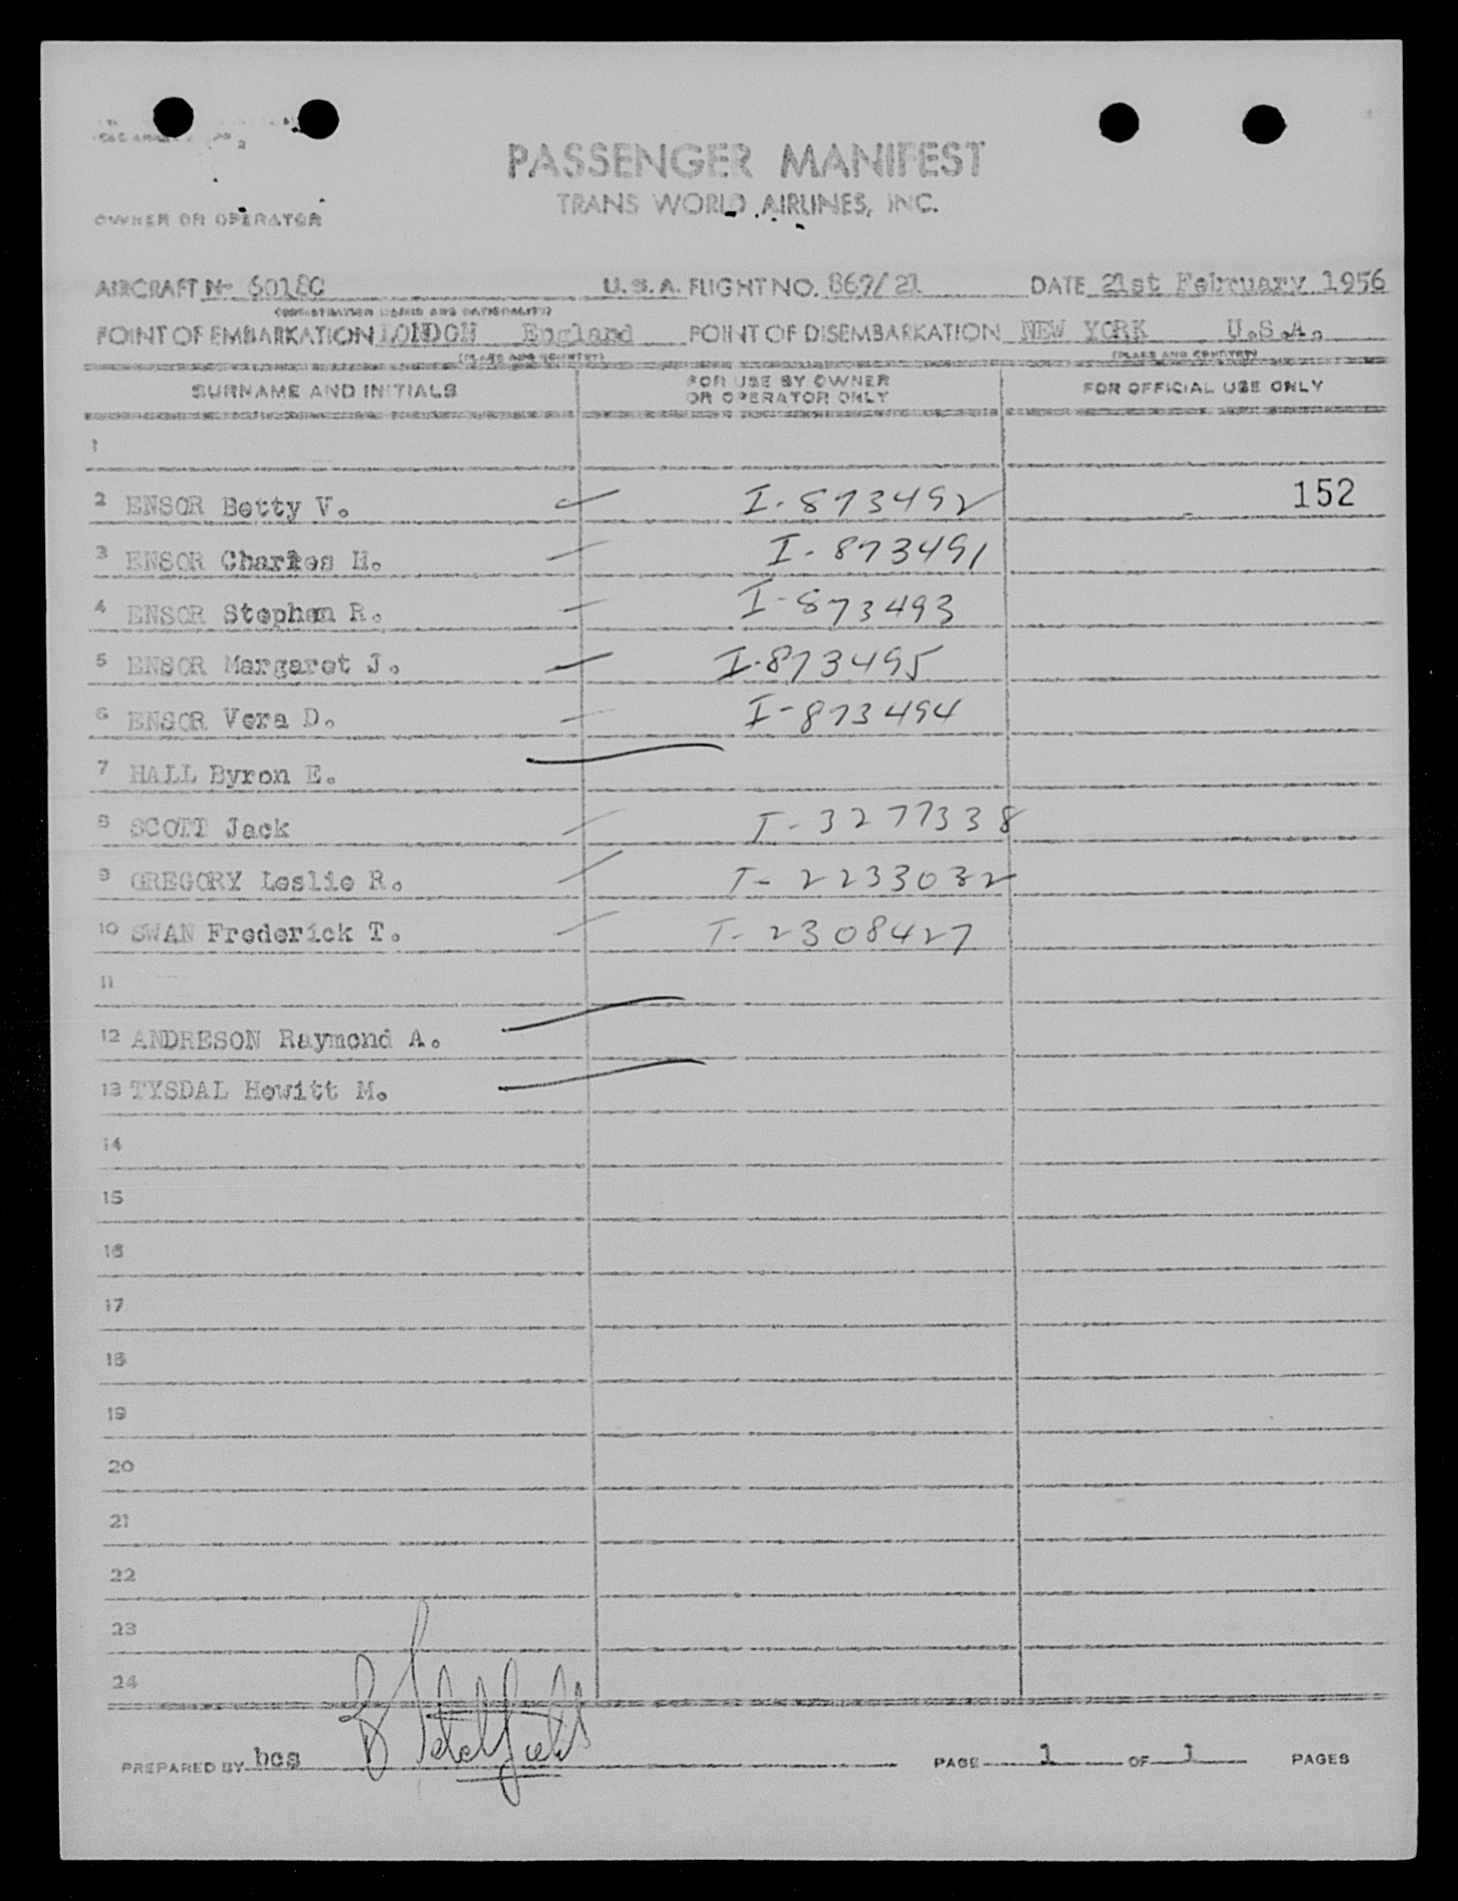 PASSENGER MANIFEST
TRANS WORLD AIRLINES, INC.
OWNER OR OPERATOR
AIRCRAFT No 6018C U.S.A. FLIGHT NO. 869/21 DATE 21st February 1956
(REGISTRATION MARKS AND NATIONALITY)
POINT OF EMBARKATION LONDON England POINT OF DISEMBARKATION NEW YORK U.S.A.
(PLACE AND COUNTRY) (PLACE AND COUNTRY)
SURNAME AND INITIALS FOR USE BY OWNER OR OPERATOR ONLY FOR OFFICIAL USE ONLY
1
2 ENSOR Betty V. I-873492 152
3 ENSOR Charles H. I-873491
4 ENSOR Stephen R. I-873493
5 ENSOR Margaret J. I-873495
6 ENSOR Vera D. I-873494
7 HALL Byron E.
8 SCOTT Jack I-3277338
9 GREGORY Leslie R. I-2233032
10 SWAN Frederick T. I-2308427
11
12 ANDRESON Raymond A.
13 TYSDAL Hewitt M.
14
15
16
17
18
19
20
21
22
23
24
PREPARED BY hcs PAGE 1 OF 1 PAGES